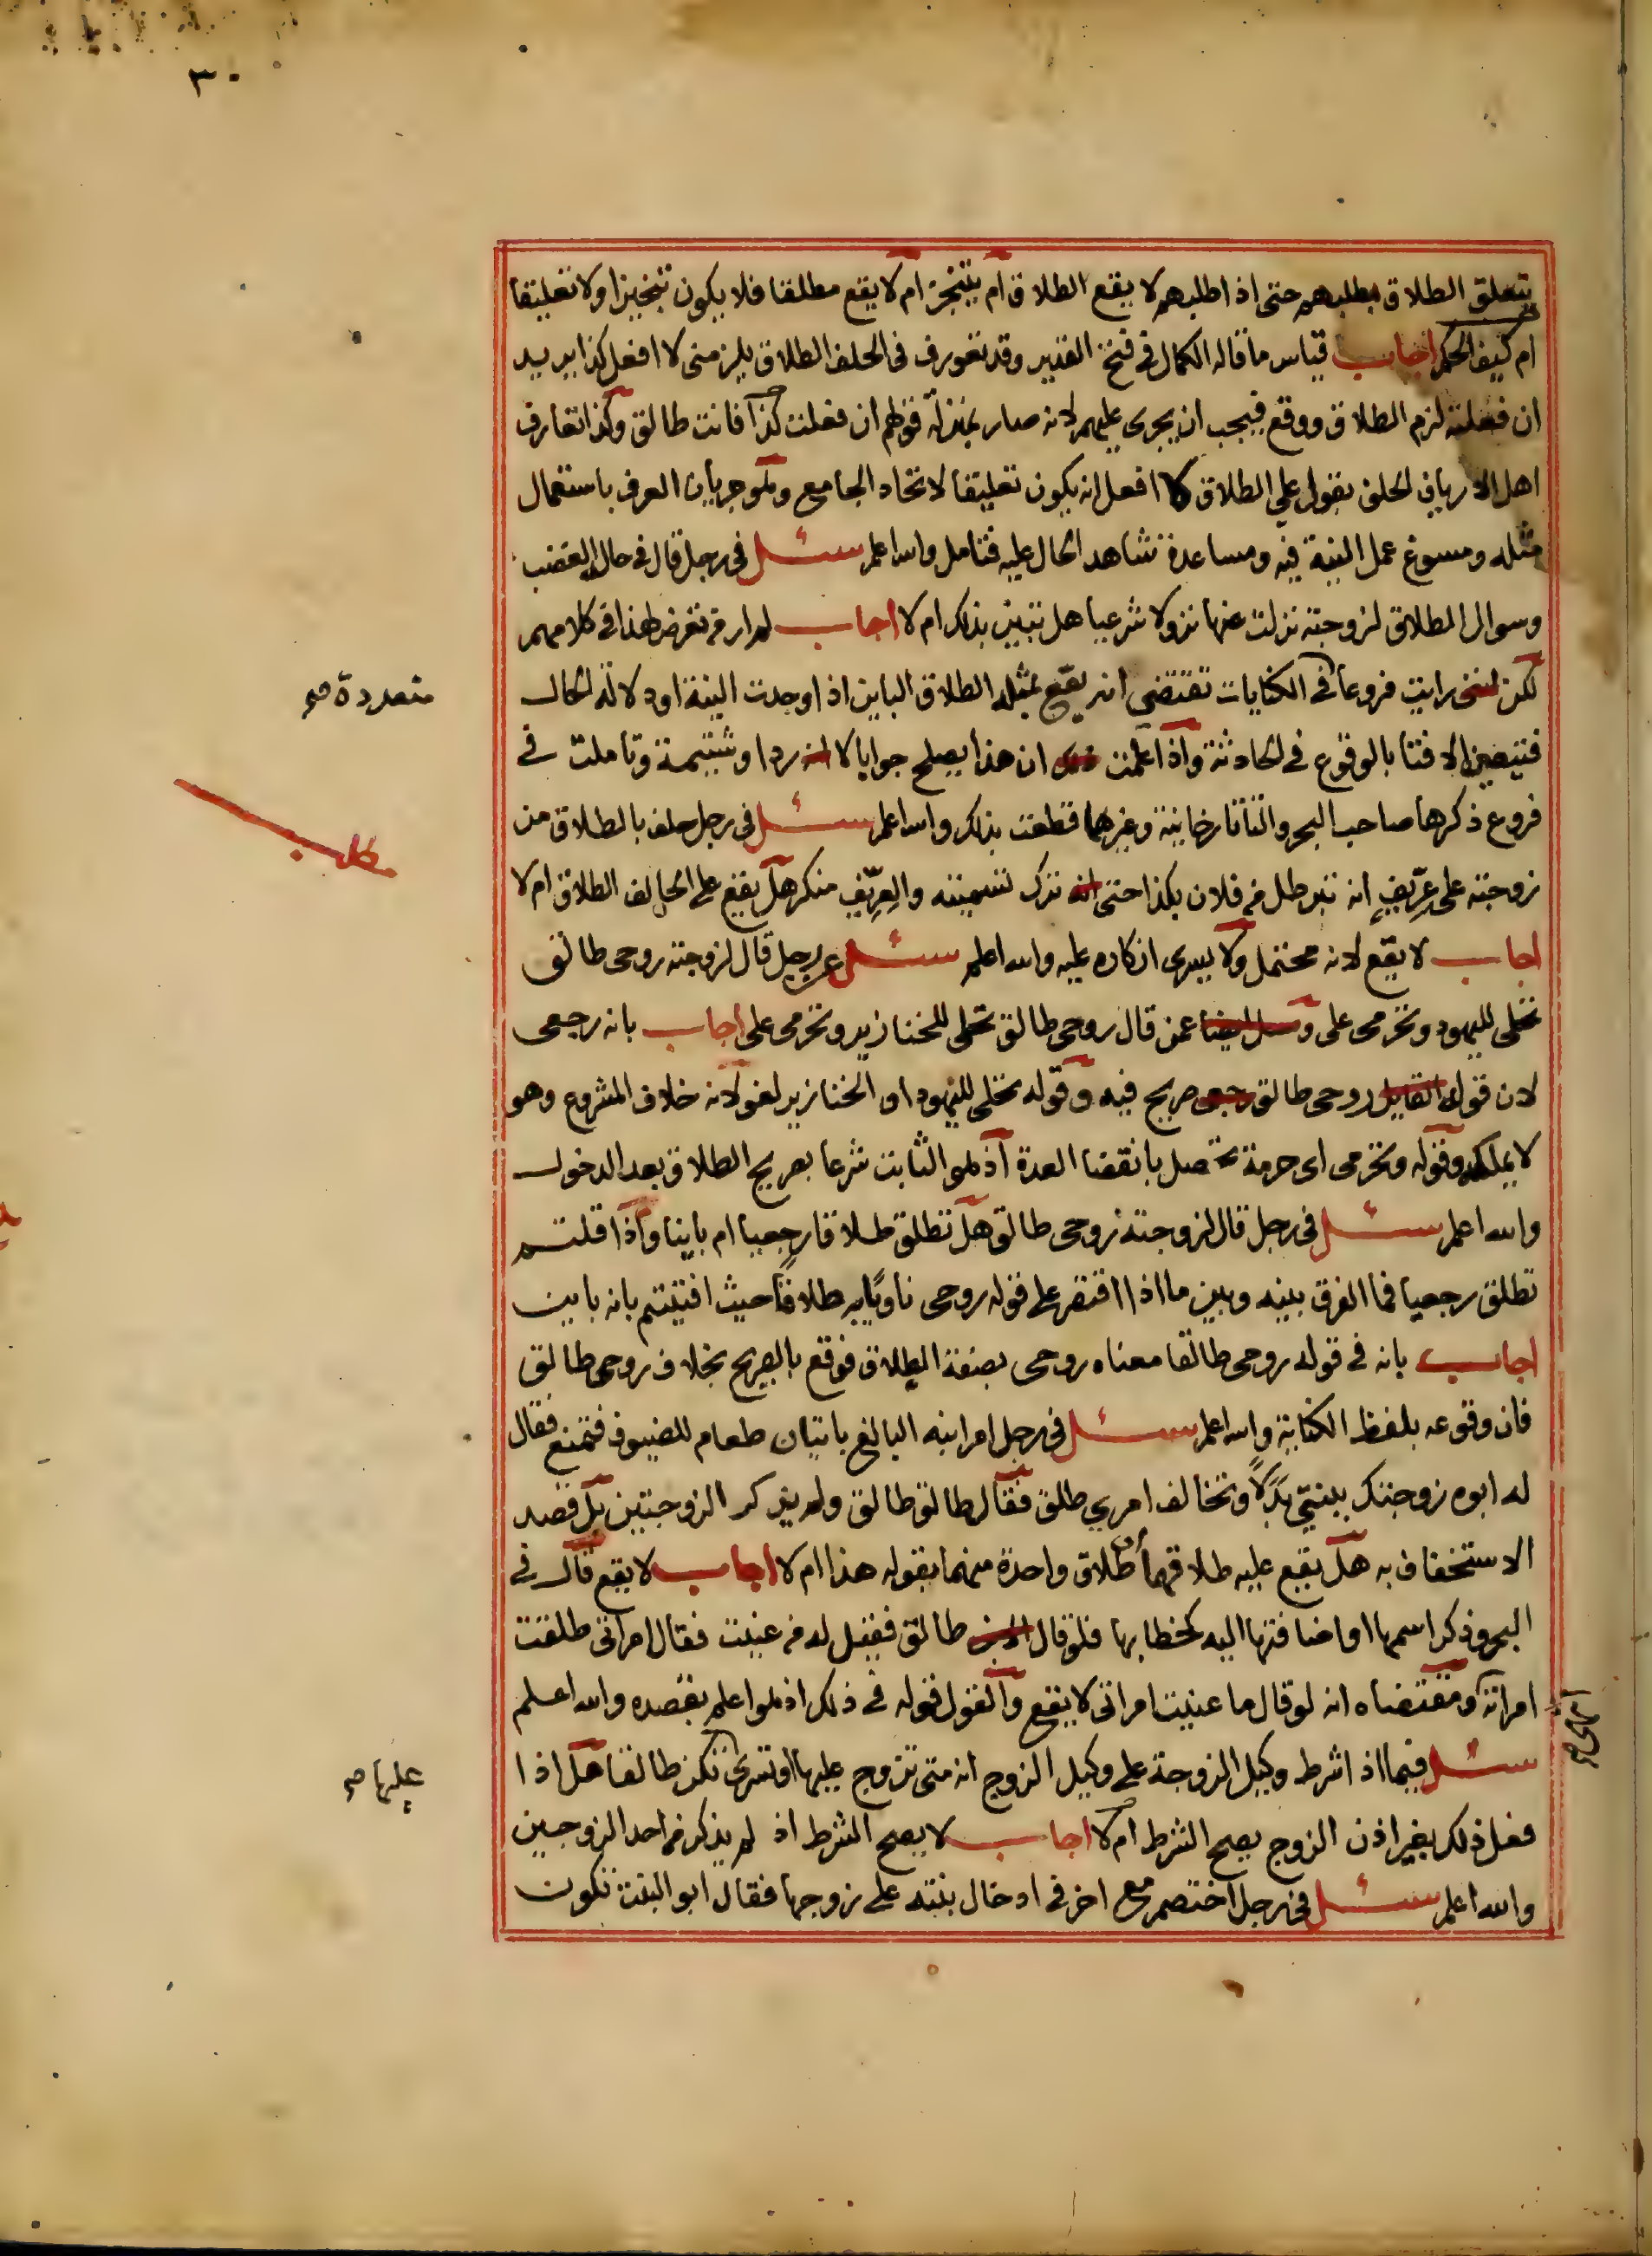 ٣٠
يتعلق الطلاق بطلبهم حتى اذا طلبهم لا يقع الطلاق ام يتنجز ام لا يقع مطلقا فلا يكون تنجيزا ولا تعليقا
ام كيف الحكم اجاب قياس ما قاله الكمال في فتح القدير وقد تعورف في الحلف الطلاق يلزمني لا افعل كذا يريد
ان فعلته لزم الطلاق ووقع فيجب ان يجري عليهم لانه صار بمنزلة قولهم ان فعلت كذا فانت طالق وكذا تعارف
اهل الارياف الحلف بقوله علي الطلاق لا افعل انه يكون تعليقا لاتحاد الجامع وهو جريان العرف باستعمال
مثله ومسوغ عمل النية فيه ومساعدة شاهد الحال عليه فتامل والله اعلم سئل في رجل قال في حال الغضب
وسوال الطلاق لزوجته نزلت عنها نزولا شرعيا هل تبين بذلك ام لا اجاب لم ار من تعرض لهذا في كلامهم
لكن رايت فروعا في الكنايات تقتضي انه يقع بمثله الطلاق الباين اذا وجدت النية او دلالة الحال
متعددة صح
فتيعين الافتا بالوقوع في الحادثة واذا علمت ان هذا يصلح جوابا لا ردا وشتيمة وتاملت في
فروع ذكرها صاحب البحر والتتارخانية وغيرهما قطعت بذلك والله اعلم سئل في رجل حلف بالطلاق من
مطلب
زوجته على عريف انه تبرطل من فلان بكذا حتى ترك تسميته والعريف منكر هل يقع على الحالف الطلاق ام لا
اجاب لا يقع لانه محتمل ولا يسري انكاره عليه والله اعلم سئل عن رجل قال لزوجته روحى طالق
تحلى لليهود وتحرمى على وسئل ايضا عمن قال روحى طالق تحلى للخنازير وتحرمى على اجاب بانه رجعى
لان قوله القايل روحى طالق رجعى صريح فيه وقوله تحلى لليهود او الخنازير لغو لانه خلاف المشروع وهو
لا يملكه وقوله وتحرمى اى حرمة تحصل بانقضا العدة اذ هو الثابت شرعا بصريح الطلاق بعد الدخول
والله اعلم سئل في رجل قال لزوجته روحى طالق هل تطلق طلاقا رجعيا ام باينا واذا قلتم
تطلق رجعيا فما الفرق بينه وبين ما اذا اقتصر على قوله روحى ناويا به طلاقا حيث افتيتم بانه باين
اجاب بانه في قوله روحى طالقا معناه روحى بصفة الطلاق فوقع بالصريح بخلاف روحى طالق
فان وقوعه بلفظ الكناية والله اعلم سئل في رجل امر ابنه البالغ باتيان طعام للضيوف فتمنع فقال
له ابوه زوجتك بينتي بدلا وتخالف امري طلق فقال طالق طالق ولم يذكر الزوجتين بل قصد
الاستخفاف به هل يقع عليه طلاقهما او طلاق واحدة منهما بقوله هذا ام لا اجاب لا يقع قال في
البحر وذكر اسمها او اضافتها اليه كخطابها فلو قال طالق فقيل له من عنيت فقال امراتى طلقت
امراته ومقتضاه انه لو قال ما عنيت امراتى لا يقع والقول قوله في ذلك اذ هو اعلم بقصده والله اعلم
سئل فيما اذا شرط وكيل الزوجة على وكيل الزوج انه متى تزوج عليها او تسرى تكن طالقا هل اذا
عليها صح
فعل ذلك بغير اذن الزوج يصح الشرط ام لا اجاب لا يصح الشرط اذ لم يذكر من احد الزوجين
والله اعلم سئل في رجل اختصم مع اخر في ادخال بنته على زوجها فقال ابو البنت تكون